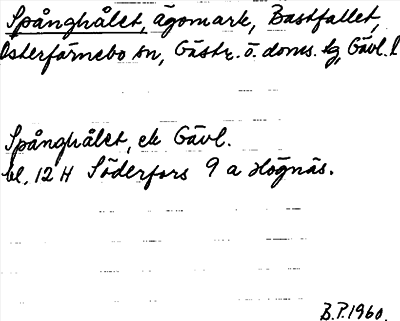 Spånghålet, ägomark, Bastfallet,
Österfärnebo sn, Gästr. ö. doms. tg, Gävl. l
Spånghålet, ek Gävl.
bl. 12 H Söderfors 9 a Högnäs.
B.P. 1960.